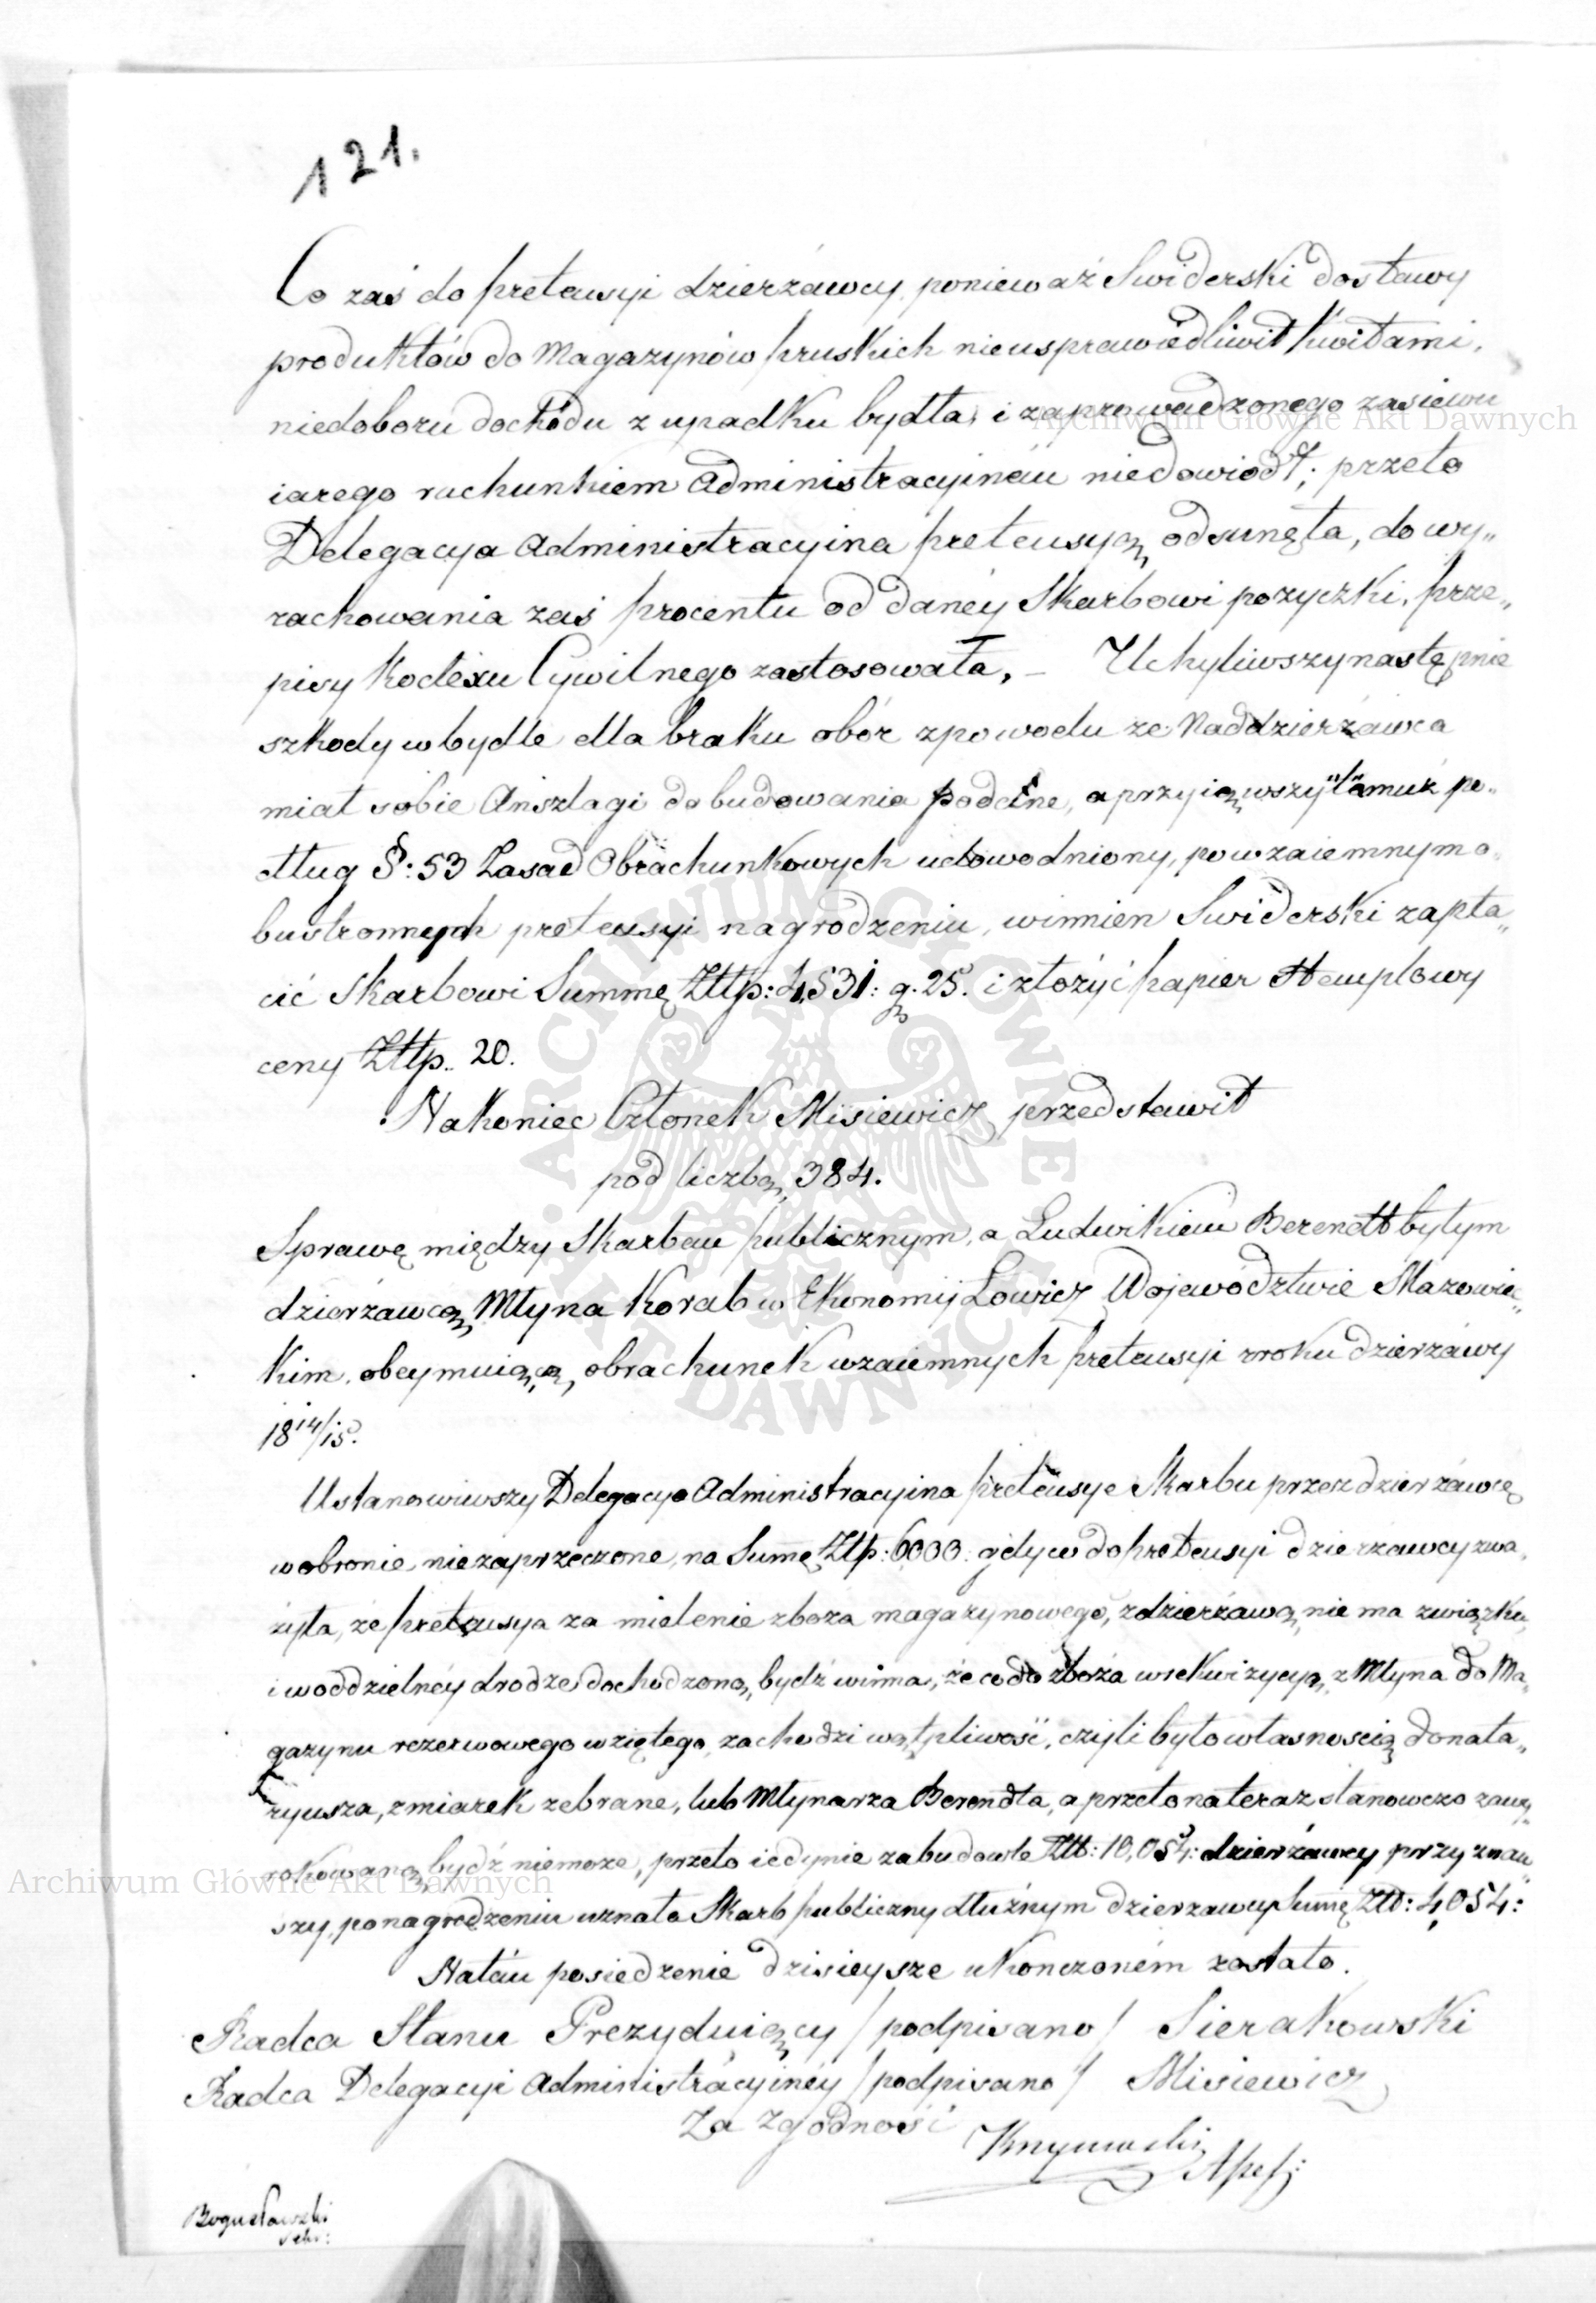 121.
Co zaś do pretensyi dzierżawcy, ponieważ Swiderski dostawy
produktów do Magazynów pruskich nieusprawiedliwił kwitami,
niedoboru dochodu z upadku bydła, i zaprowadzonego zasiewu
iarego rachunkiem Administracyinem niedowiódł; przeto
Delegacya Administracyina pretensyą odsunęła, do wy„
rachowania zaś procentu od danéy Skarbowi pożyczki, prze„
pisy Kodexu Cywilnego zastosowała. – Uchyliwszy następnie
szkody w bydle dla braku obór z powodu że Naddzierżawca
miał sobie Anszlagi do budowania podane, a przyiąwszy
dług §: 53 Zasad Obrachunkowych udowodniony, po wzaiemnym o„
bustronnych pretensyi nagrodzeniu, winien Swiderski zapła„
cić Skarbowi Summę Złtp: 4,531: g. 25. i złożyć papier Stemplowy
ceny Złtp. 20.
Nakoniec Członek Misiewicz przedstawił
pod liczbą 384.
Sprawę między Skarbem publicznym, a Ludwikiem Berendt byłym
dzierżawcą Młyna Korab w Ekonomij Łowicz Wojewódźtwie Mazowiec„
kim, obeymuiącą obrachunek wzaiemnych pretensyi z roku dzierżawy
18 14/15.
Ustanowiwszy Delegacya Administracyina pretensye Skarbu przez dzierżawcę
w obronie niezaprzeczone, na Sumę Złtp: 6000: gdy co do pretensyi dzierżawcy zwa„
żyła, że pretensya za mielenie zboża magazynowego, z dzierżawą nie ma związku,
i w oddzielnéy drodze dochodzoną bydź winna, że co do zboża w rekwizycyą z Młyna do Ma„
gazynu rezerwowego wziętego, zachodzi wątpliwość, czyli było własnością donata„
ryusza, z miarek zebrane, lub Młynarza Berendta, a przeto na teraz stanowczo zawy„
rokowaną bydź niemoże, przeto iedynie za budowle Złt: 10,054: dzierżawcy przyznaw„
szy, po nagrodzeniu uznała Skarb publiczny dłużnym dzierżawcy Sumę Złt: 4,054:
Na tém posiedzenie dzisieysze ukończoném zostało.
Radca Stanu Prezyduiący /podpisano/ Sierakowski
Radca Delegacyi Administracyinéy /podpisano/ Misiewicz
Za Zgodność
Bogusławski
Sekr:
Archiwum Główne Akt Dawnych
Archiwum Główne Akt Dawnych
ARCHIWUM GŁÓWNE AKT DAWNYCH